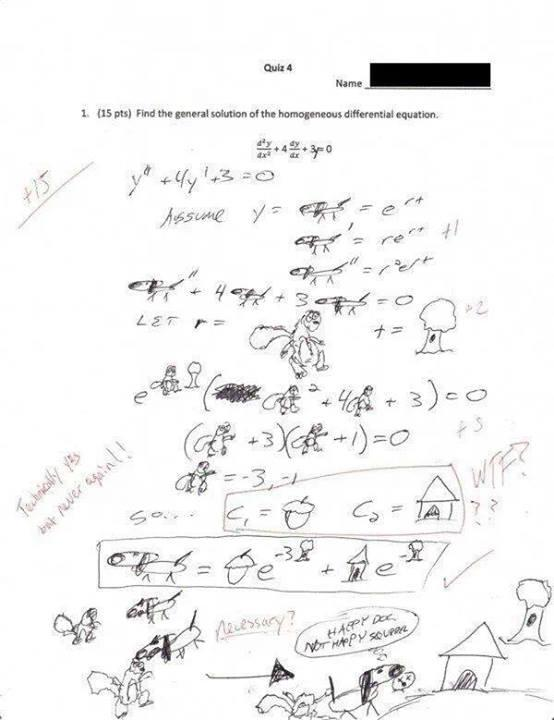 Quiz 4
Name
1. (15 pts) Find the general solution of the homogeneous differential equation.
d²y/dx² + 4 dy/dx + 3y = 0
+15
y" + 4y' + 3 = 0
ASSUME y = = e^rt
' = re^rt +1
" = r²e^rt
" + 4 ' + 3 = 0
LET r = t = +2
e ( ² + 4 + 3) = 0
( + 3)( + 1) = 0 +3
= -3, -1
Technically yes
but never again!!
WTF?
??
SO... C₁ = C₂ =
= e^-3 + e^-
Necessary?
HAPPY DOG
NOT HAPPY SQUIRREL